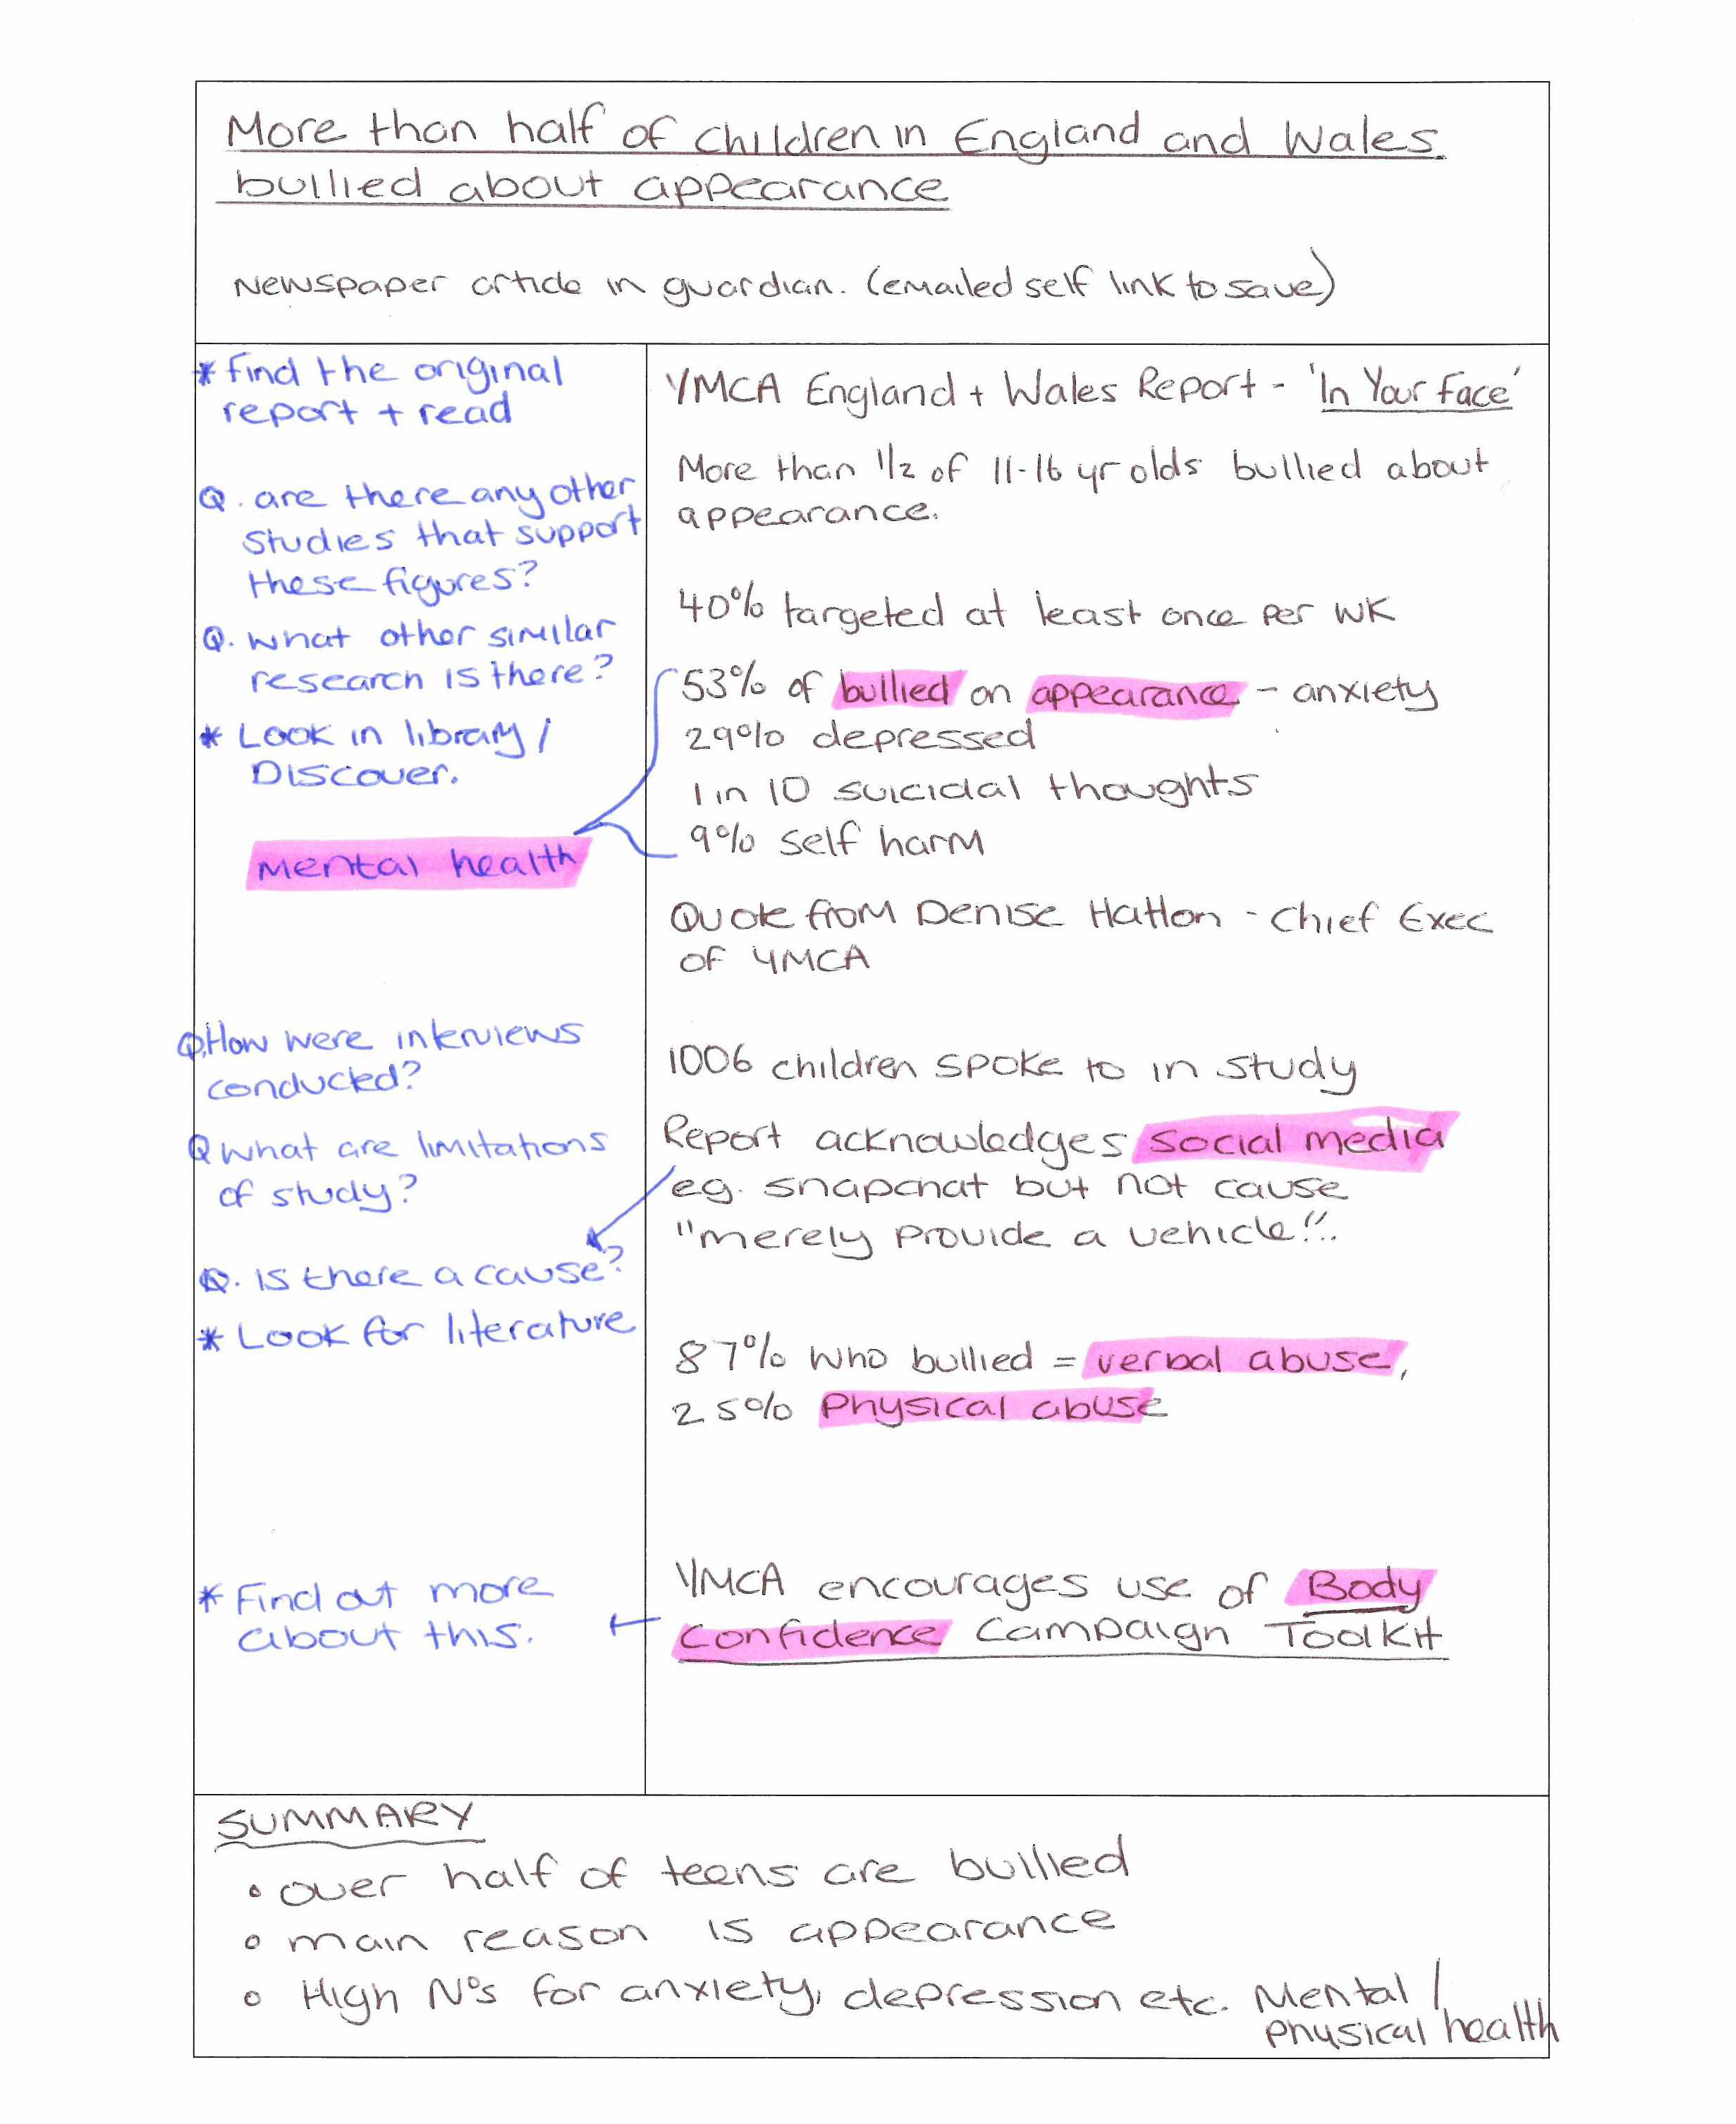 More than half of children in England and Wales
bullied about appearance
Newspaper article in guardian. (emailed self link to save)
* Find the original
report + read
Q. are there any other
studies that support
these figures?
Q. what other similar
research is there?
* Look in library /
Discover.
Mental health
Q. How were interviews
conducted?
Q what are limitations
of study?
Q. Is there a cause?
* Look for literature
* Find out more
about this.
YMCA England + Wales Report - 'In Your Face'
More than 1/2 of 11-16 yr olds bullied about
appearance.
40% targeted at least once per wk
53% of bullied on appearance - anxiety
29% depressed
1 in 10 suicidal thoughts
9% self harm
Quote from Denise Hatton - Chief Exec
of YMCA
1006 children spoke to in study
Report acknowledges social media
eg. snapchat but not cause
"merely provide a vehicle!".
87% who bullied = verbal abuse,
25% Physical abuse
YMCA encourages use of Body
Confidence Campaign Toolkit
SUMMARY
• over half of teens are bullied
• main reason is appearance
• High Nos for anxiety, depression etc. Mental /
physical health